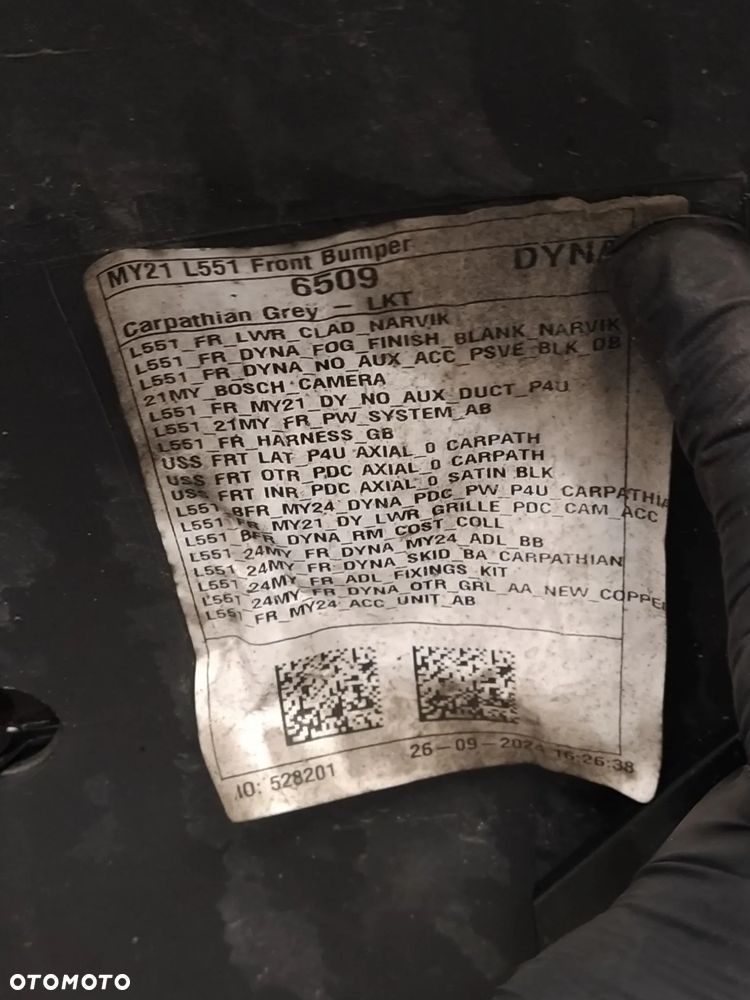 MY21 L551 Front Bumper
DYNA
6509
Carpathian Grey - LKT
L551_FR_LWR_CLAD_NARVIK
L551_FR_DYNA_FOG_FINISH_BLANK_NARVIK
L551_FR_DYNA_NO_AUX_ACC_PSVE_BLK_OB
21MY_BOSCH_CAMERA
L551_FR_MY21_DY_NO_AUX_DUCT_P4U
L551_21MY_FR_PW_SYSTEM_AB
L551_FR_HARNESS_GB
USS FRT LAT_P4U AXIAL_0 CARPATH
USS FRT OTR_PDC AXIAL_0 CARPATH
USS FRT INR_PDC AXIAL_0 SATIN BLK
L551_BFR_MY24_DYNA_PDC_PW_P4U_CARPATHIA
L551_FR_MY21_DY_LWR_GRILLE_PDC_CAM_ACC
L551_BFR_DYNA_RM_COST_COLL
L551_24MY_FR_DYNA_MY24_ADL_BB
L551_24MY_FR_DYNA_SKID_BA_CARPATHIAN
L551_24MY_FR_ADL_FIXINGS_KIT
L551_24MY_FR_DYNA_OTR_GRL_AA_NEW_COPPE
L551_FR_MY24_ACC_UNIT_AB
IO: 528201
26-09-2024 16:26:38
OTOMOTO